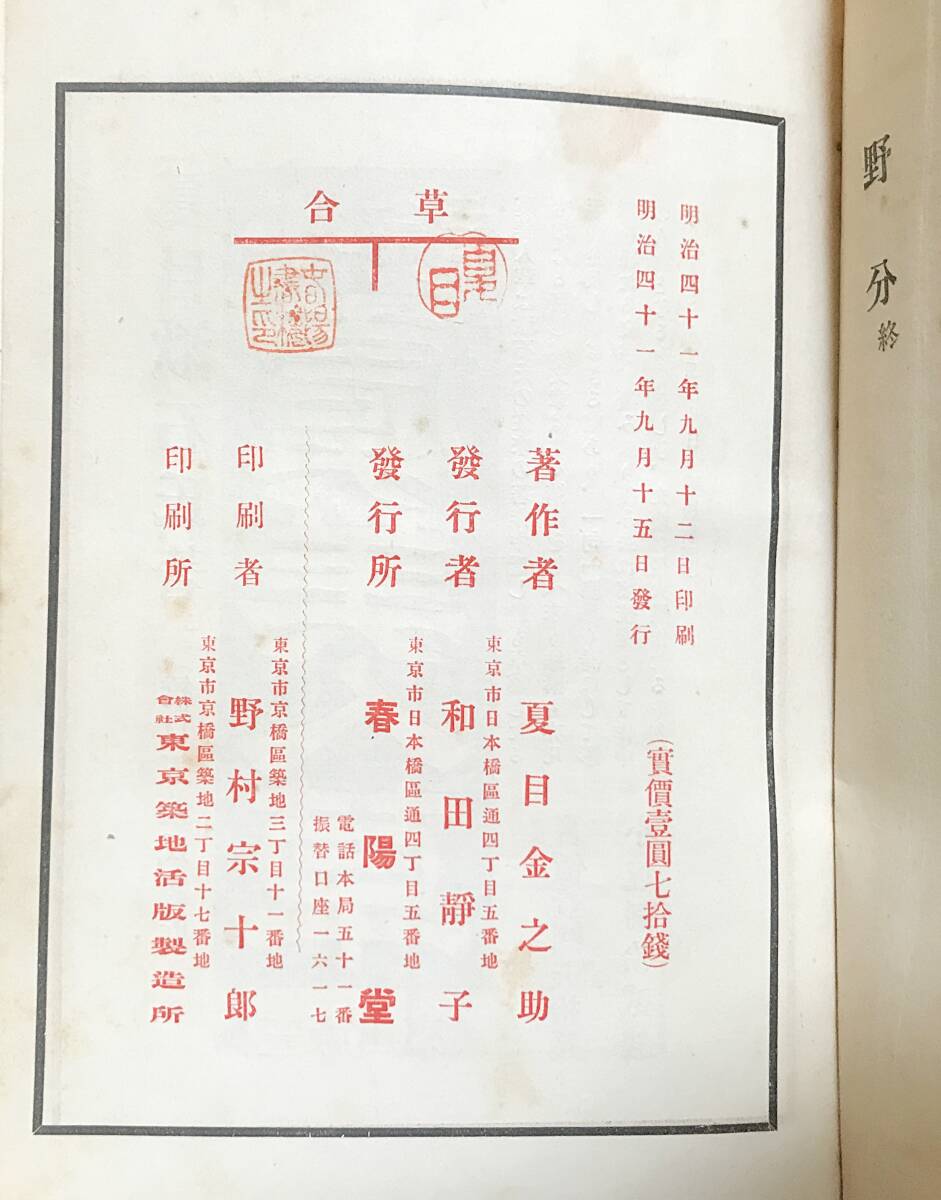 野分終
明治四十一年九月十二日印刷
明治四十一年九月十五日發行
(實價壹圓七拾錢)
草合
夏目
著作者 夏目金之助
東京市日本橋區通四丁目五番地
發行者 和田靜子
東京市日本橋區通四丁目五番地
發行所 春陽堂
電話本局五十一番
振替口座一六一七
東京市京橋區築地三丁目十一番地
印刷者 野村宗十郎
東京市京橋區築地二丁目十七番地
印刷所 株式會社東京築地活版製造所